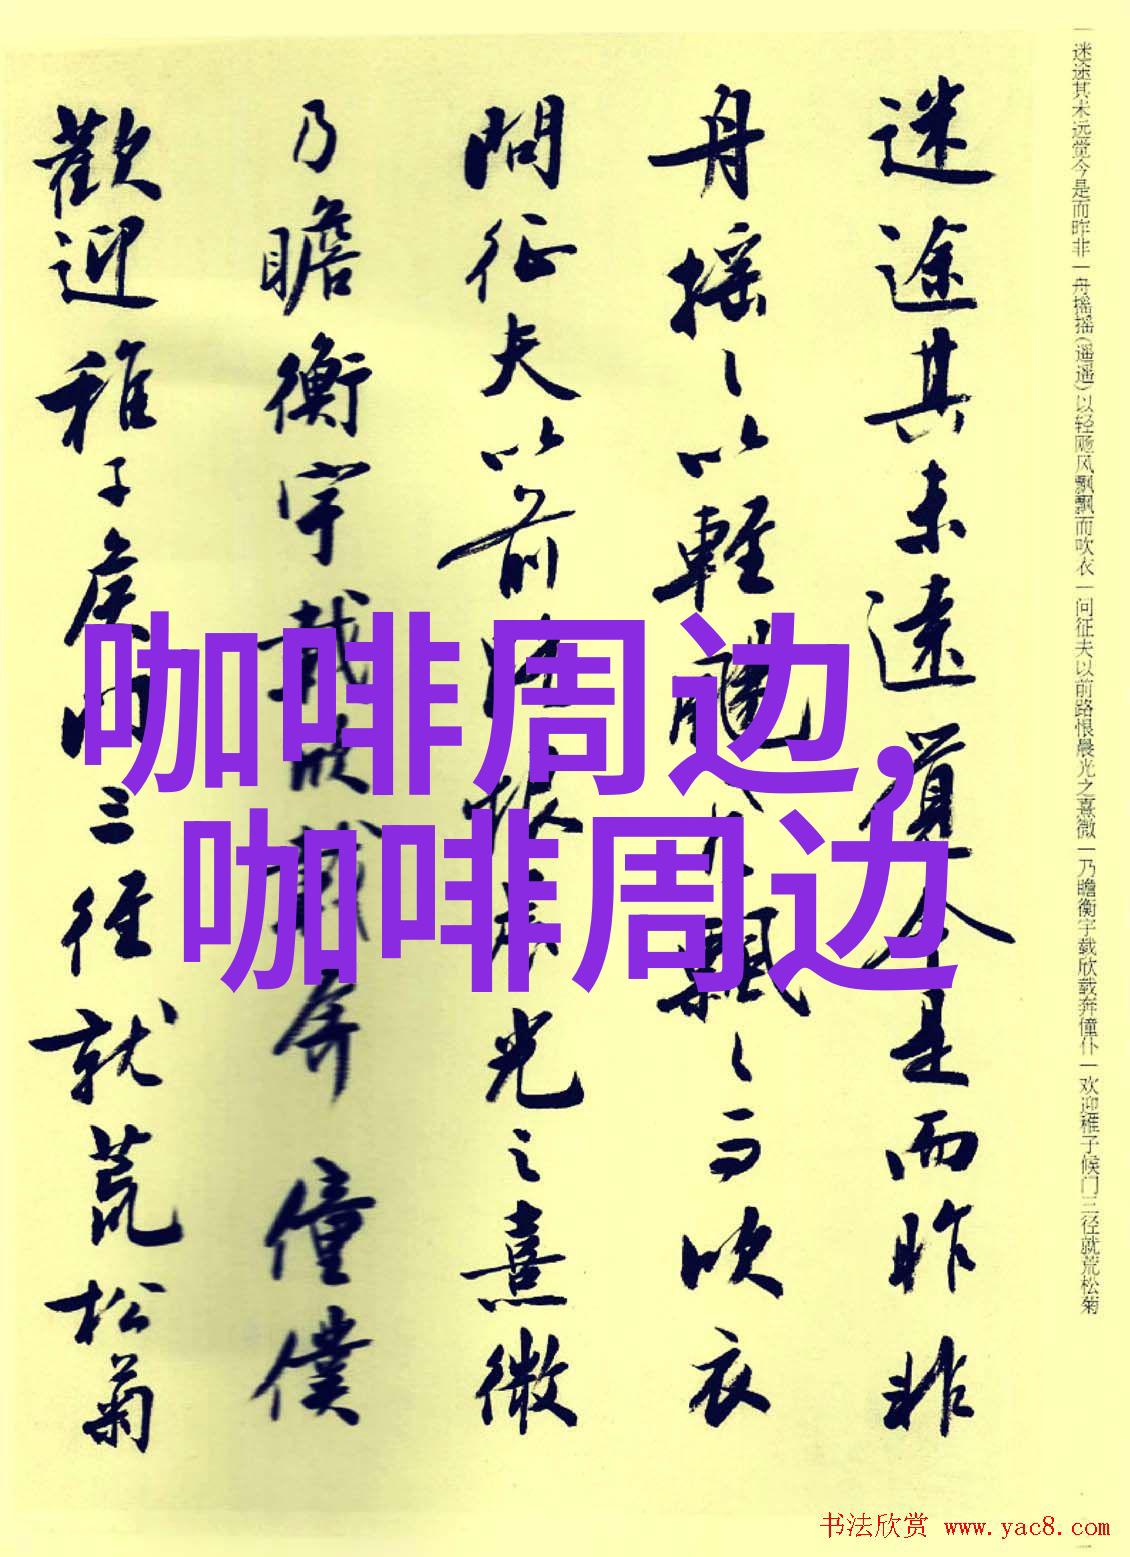 迷途其未远觉今是而昨非一舟摇摇(遥遥)以轻飏风飘飘而吹衣一问征夫以前路恨晨光之熹微一乃瞻衡宇载欣载奔僮仆一欢迎稚子候门三径就荒松菊
迷途其未遠覺今是而昨非
舟摇〻以輕飏風飄〻而吹衣
問征夫以前路恨晨光之熹微
乃瞻衡宇載欣載奔僮僕
歡迎稚子候門三徑就荒松菊
咖啡周边,
咖啡周边
书法欣赏 www.yac8.com